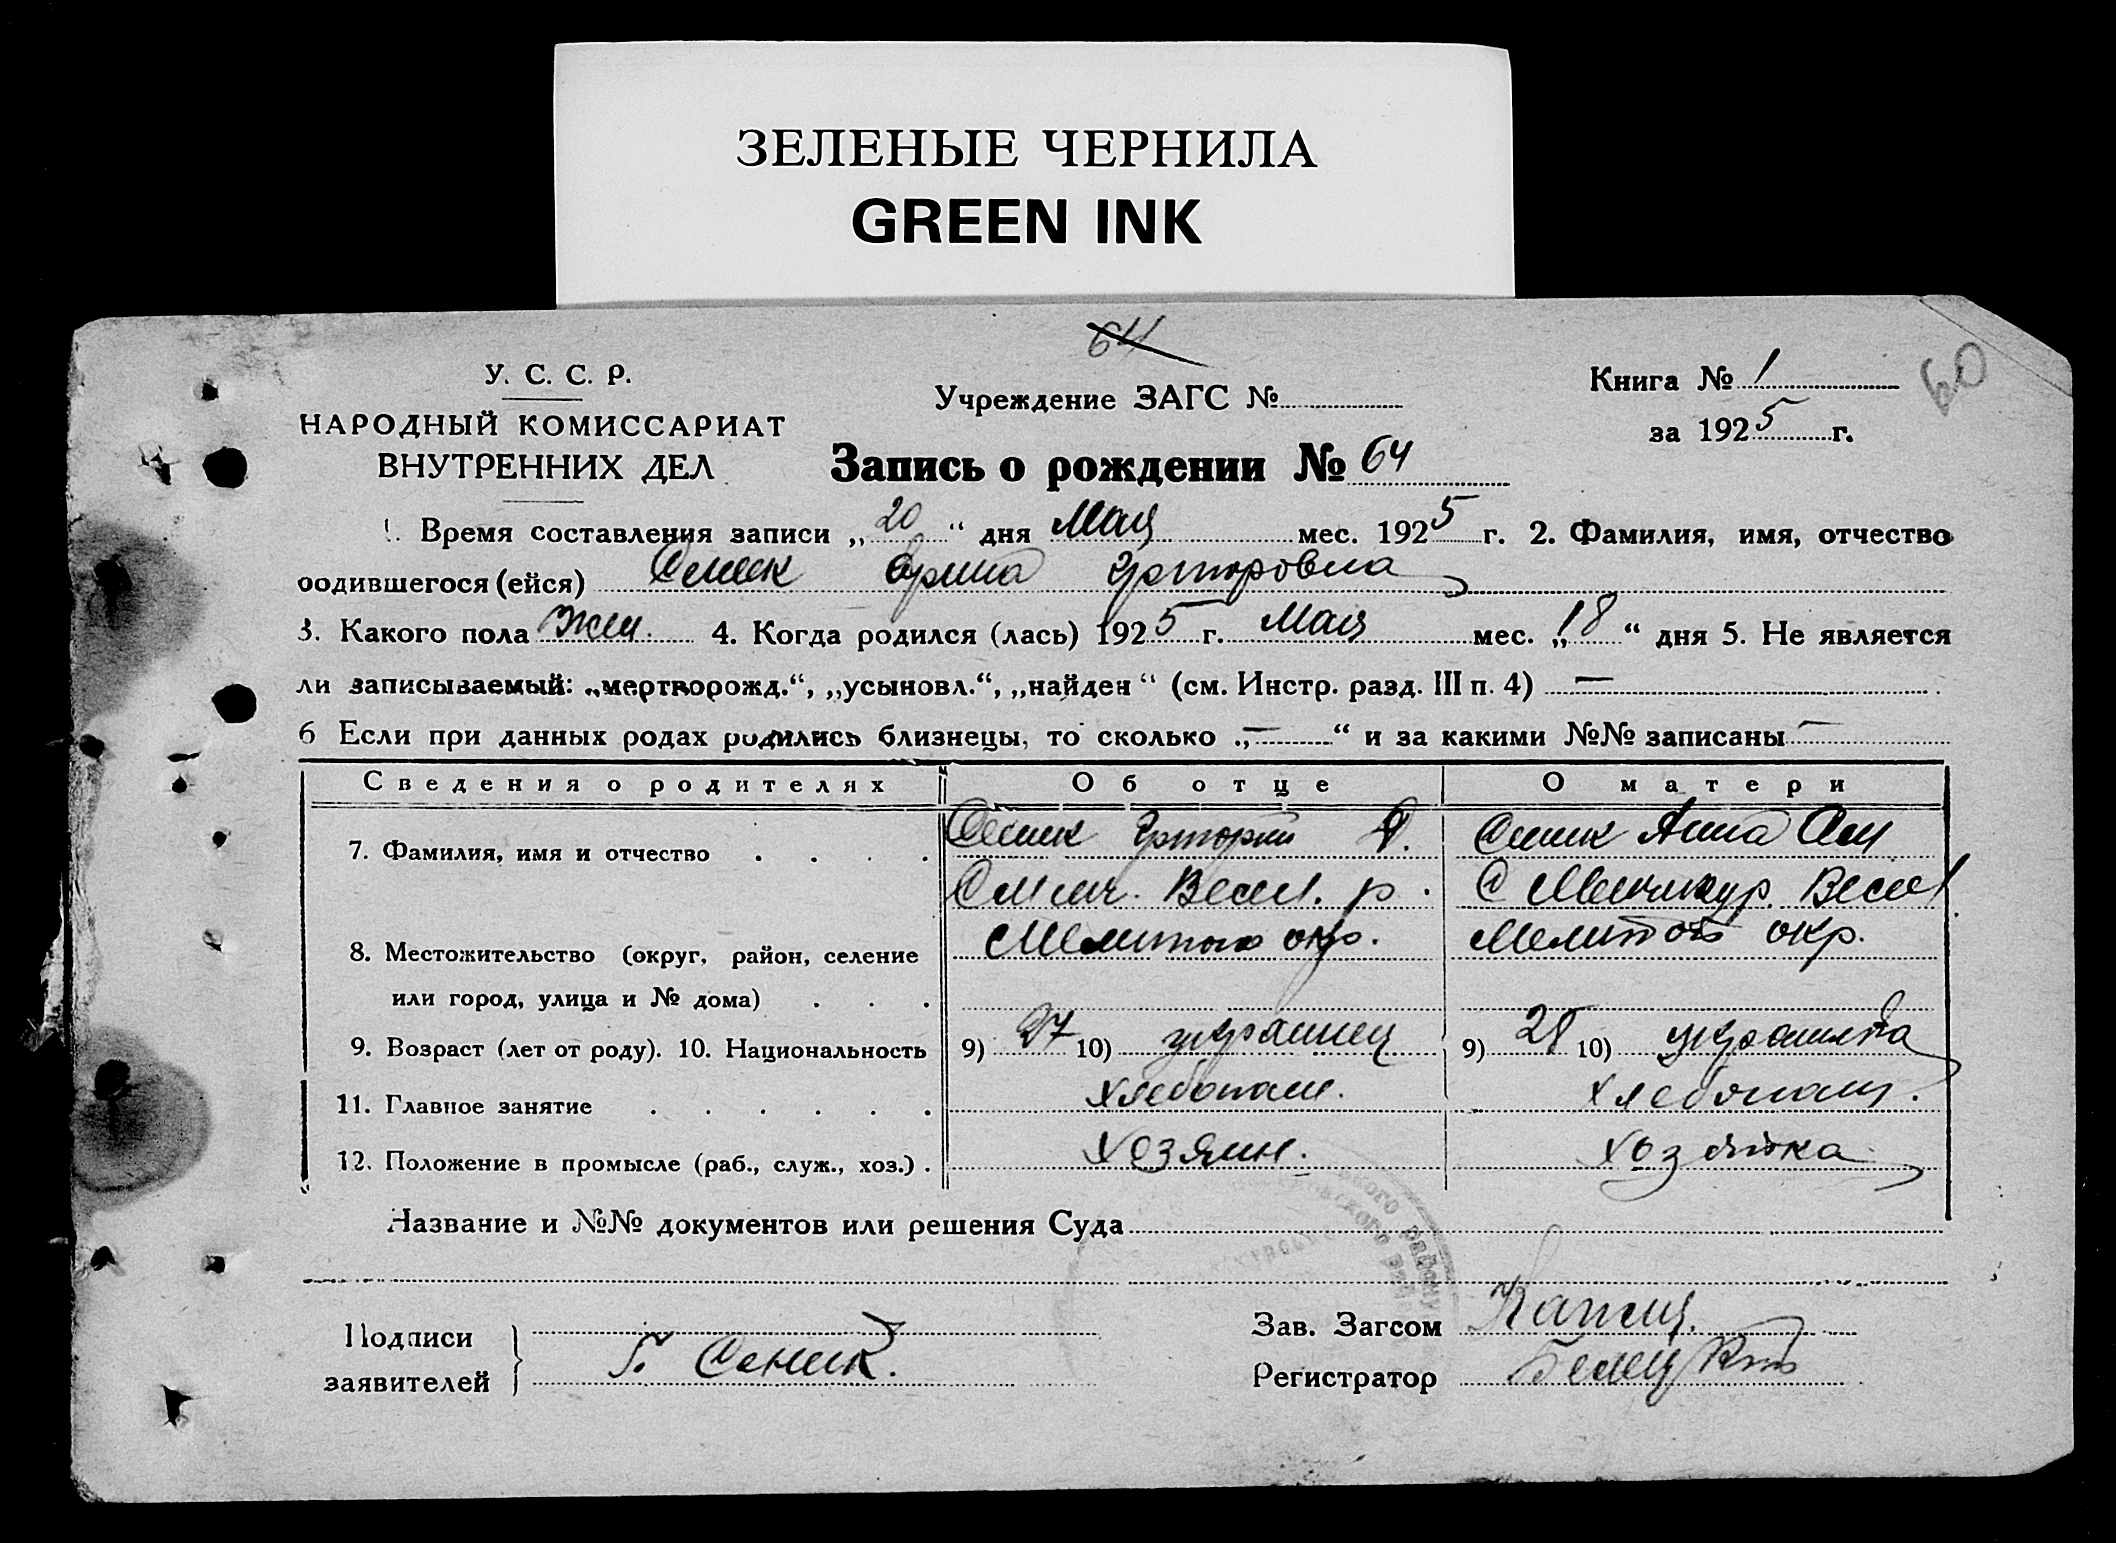 ЗЕЛЕНЫЕ ЧЕРНИЛА
GREEN INK
64
60
У. С. С. Р.
НАРОДНЫЙ КОМИССАРИАТ
ВНУТРЕННИХ ДЕЛ
Учреждение ЗАГС №
Книга № 1
за 1925 г.
Запись о рождении № 64
1. Время составления записи „20“ дня Мая мес. 1925 г. 2. Фамилия, имя, отчество
родившегося (ейся) Сеник Григоровна
3. Какого пола Жен. 4. Когда родился (лась) 1925 г. Мая мес. „18“ дня 5. Не является
ли записываемый: „мертворожд.“, „усыновл.“, „найден“ (см. Инстр. разд. III п. 4) —
6 Если при данных родах родились близнецы, то сколько „—“ и за какими №№ записаны —
Сведения о родителях Об отце О матери
7. Фамилия, имя и отчество . . . . Сеник Григорий Сеник Анна
Весел. р. Весел
8. Местожительство (округ, район, селение Мелитоп окр. Мелитоп окр.
или город, улица и № дома) . . .
9. Возраст (лет от роду). 10. Национальность 9) 27 10) украинец 9) 10) украинка
11. Главное занятие . . . . . . Хлебопаш. Хлебопаш.
12. Положение в промысле (раб., служ., хоз.) . Хозяин. Хозяйка
Название и №№ документов или решения Суда
Подписи
заявителей
Г. Сеник.
Зав. Загсом
Регистратор